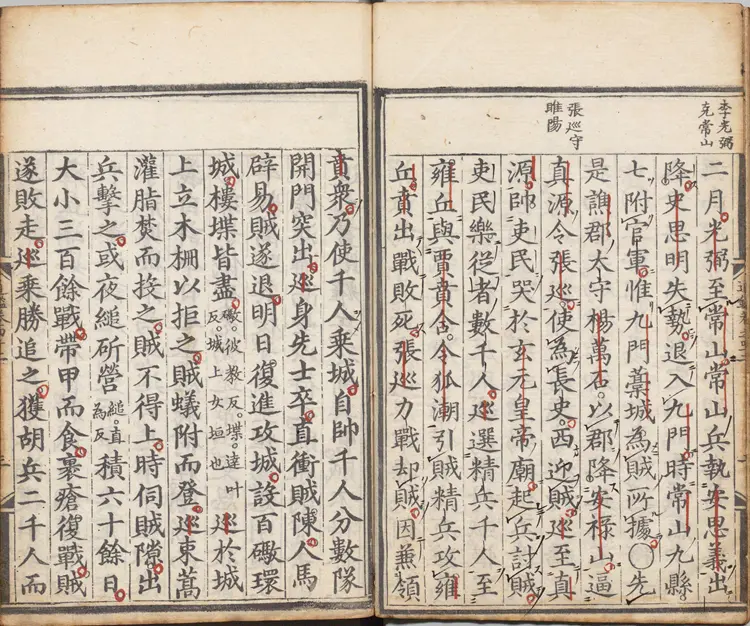 李光弼
克常山
張巡守
睢陽
二月光弼至常山常山兵執安思義出
降史思明失勢退入九門時常山九縣
七附官軍惟九門藁城為賊所據○先
是譙郡太守楊萬石以郡降安祿山逼
真源令張巡使為長史西迎賊巡至真
源帥吏民哭於玄元皇帝廟起兵討賊
吏民樂從者數千人巡選精兵千人至
雍丘與賈賁合令狐潮引賊精兵攻雍
丘賁出戰敗死張巡力戰却賊因兼領
賁衆乃使千人乘城自帥千人分數隊
開門突出巡身先士卒直衝賊陳人馬
辟易賊遂退明日復進攻城設百礮環
城樓堞皆盡礮。彼教反。堞。達叶反。城上女垣也巡於城
上立木柵以拒之賊蟻附而登巡束蒿
灌脂焚而投之賊不得上時伺賊隙出
兵擊之或夜縋斫營縋。直為反積六十餘日
大小三百餘戰帶甲而食裹瘡復戰賊
遂敗走巡乘勝追之獲胡兵二千人而